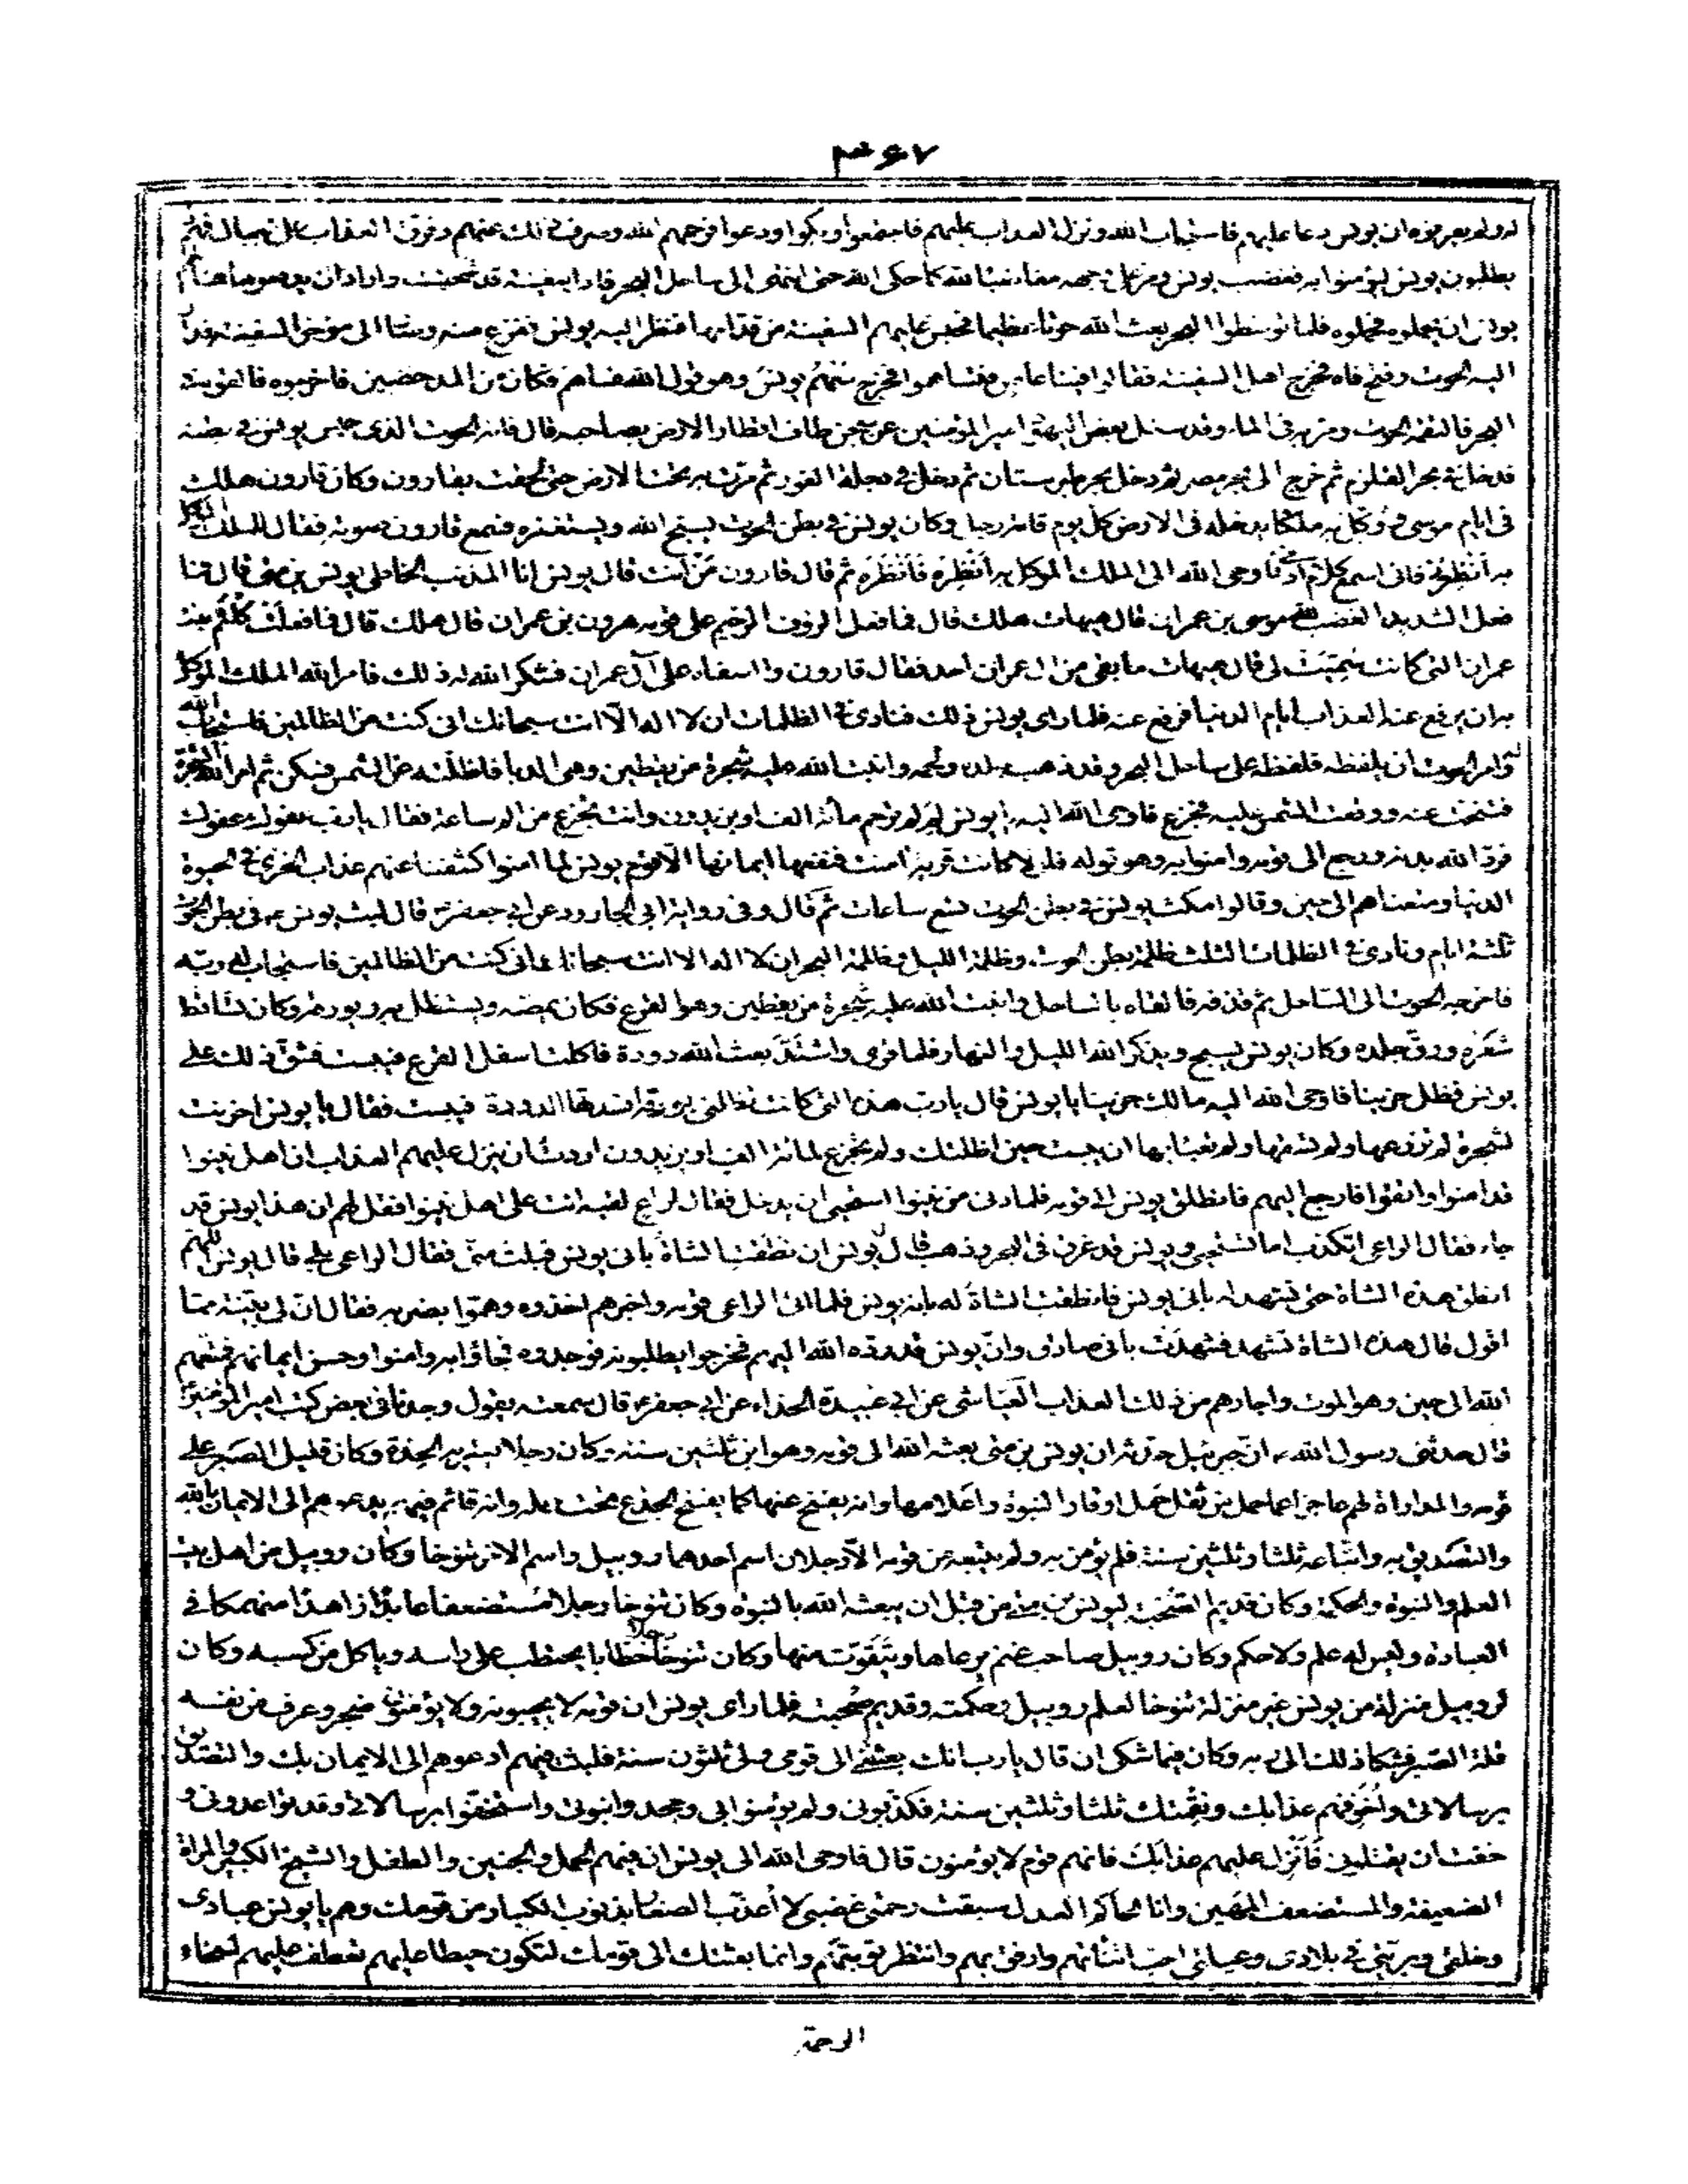 ٣٦٧
له ولم يعرفوه ان يونس دعا عليهم فاستجاب الله ونزل العذاب عليهم فاجتمعوا وبكوا ودعوا فرحمهم الله وصرف ذلك عنهم وفرق العذاب على الجبال فهم
يطلبون يونس ليؤمنوا به فغضب يونس ومر على وجهه مغاضبا لله كما حكى الله حتى انتهى الى ساحل البحر فاذا سفينة قد شحنت وارادوا ان يدفعوها فسألهم
يونس ان يحملوه فحملوه فلما توسطوا البحر بعث الله حوتا عظيما فحبس عليهم السفينة من قدامها فنظر اليه يونس ففزع منه وصار الى مؤخر السفينة فدار
اليه الحوت وفتح فاه فخرج اهل السفينة فقالوا فينا عاص فتساهموا فخرج سهم يونس وهو قول الله فساهم فكان من المدحضين فاخرجوه فالقوه في
البحر فالتقمه الحوت ومر به فى الماء وقد سئل بعض اليهود امير المؤمنين عن سجن طاف اقطار الارض بصاحبه قال فانه الحوت الذى حبس يونس في بطنه
فدخل في بحر القلزم ثم خرج الى بحر مصر ثم دخل بحر طبرستان ثم دخل في دجلة الغور ثم مرت به تحت الارض حتى لحقت بقارون وكان قارون هلك
فى ايام موسى ووكل به ملكا يدخله فى الارض كل يوم قامة رجل وكان يونس في بطن الحوت يسبح الله ويستغفره فسمع قارون صوته فقال للملك الموكل
به أنظرني فانى اسمع كلام آدمي فاوحى الله الى الملك الموكل به أنظره فأنظره ثم قال قارون من أنت قال يونس انا المذنب الخاطئ يونس بن متى قال فما
فعل الشديد الغضب لله موسى بن عمران قال هيهات هلك قال فما فعل الرؤف الرحيم على قومه هرون بن عمران قال هلك قال فما فعلت كلثم بنت
عمران التى كانت سميت لى قال هيهات ما بقى من ال عمران احد فقال قارون وا اسفاه على آل عمران فشكر الله له ذلك فامر الله الملك الموكل
به ان يرفع عنه العذاب ايام الدنيا فرفع عنه فلما راى يونس ذلك فنادى في الظلمات ان لا اله الا انت سبحانك انى كنت من الظالمين فاستجاب الله
له وامر الحوت ان يلفظه فلفظه على ساحل البحر وقد ذهب جلده ولحمه وانبت الله عليه شجرة من يقطين وهى الدبا فاظلته عن الشمس فسكن ثم امر الله الشجرة
فتنحت عنه ووقعت الشمس عليه فجزع فاوحى الله اليه يا يونس لم لم ترحم مائة الف او يزيدون وانت تجزع من الم ساعة فقال يا رب عفوك عفوك
فرد الله بدنه ورجع الى قومه وامنوا به وهو قوله فلولا كانت قرية امنت فنفعها ايمانها الا قوم يونس لما امنوا كشفنا عنهم عذاب الخزي في الحيوة
الدنيا ومتعناهم الى حين وقالوا مكث يونس في بطن الحوت تسع ساعات ثم قال وفى رواية ابي الجارود عن ابي جعفر قال لبث يونس فى بطن الحوت
ثلثة ايام ونادى في الظلمات الثلث ظلمة بطن الحوت وظلمة الليل وظلمة البحر ان لا اله الا انت سبحانك انى كنت من الظالمين فاستجاب له ربه
فاخرجه الحوت الى الساحل ثم قذفه فالقاه بالساحل وانبت الله عليه شجرة من يقطين وهو القرع فكان يمصه ويستظل به وبورقه وكان تساقط
شعره ورق جلده وكان يونس يسبح ويذكر الله الليل والنهار فلما قوى واشتد بعث الله دودة فاكلت اسفل القرع فيبست فشق ذلك على
يونس فظل حزينا فاوحى الله اليه ما لك حزينا يا يونس قال يا رب هذه التى كانت تنفعنى سلطت عليها الدودة فيبست فقال يا يونس احزنت
لشجرة لم تزرعها ولم تسقها ولم تعبأ بها ان يبست حين اظلتك ولم تجزع لمائة الف او يزيدون اردت ان ينزل عليهم العذاب ان اهل نينوا
قد امنوا واتقوا فارجع اليهم فانطلق يونس الى قومه فلما دنى من نينوا استحيى ان يدخل فقال لراع لقيه ائت على اهل نينوا فقل لهم ان هذا يونس قد
جاء فقال الراعى اتكذب اما تستحيى ويونس قد غرق فى البحر وذهب قال يونس ان نطقت الشاة بانى يونس قبلت منى فقال الراعى بلى قال يونس اللهم
انطق هذه الشاة حتى تشهد له بانى يونس فانطقت الشاة له بانه يونس فلما اتى الراعى قومه واخبرهم اخذوه وهموا بضربه فقال ان لى بينة مما
اقول قال هذه الشاة تشهد فشهدت بانى صادق وان يونس قد رده الله اليهم فخرجوا يطلبونه فوجدوه فجاؤا به وامنوا وحسن ايمانهم فمتعهم
الله الى حين وهو الموت واجارهم من ذلك العذاب العياشى عن ابي عبيدة الحذاء عن ابي جعفر قال سمعته يقول وجدنا فى بعض كتب امير المؤمنين
قال حدثنى رسول الله ان جبرئيل حدثه ان يونس بن متى بعثه الله الى قومه وهو ابن ثلثين سنة وكان رجلا يعتريه الحدة وكان قليل الصبر على
قومه والمداراة لهم عاجزا عما حمل من ثقل حمل اوقار النبوة واعلامها وانه يفسخ عنها كما يفسخ الجذع تحت حمله وانه قائم فيهم يدعوهم الى الايمان بالله
والتصديق به واتباعه ثلثا وثلثين سنة فلم يؤمن به ولم يتبعه من قومه الا رجلان اسم احدهما روبيل واسم الاخر تنوخا وكان روبيل من اهل بيت
العلم والنبوة والحكمة وكان قديم الصحبة ليونس بن متى من قبل ان يبعثه الله بالنبوة وكان تنوخا رجلا مستضعفا عابدا زاهدا منهمكا في
العبادة وليس له علم ولا حكم وكان روبيل صاحب غنم يرعاها ويتقوت منها وكان تنوخا رجلا حطابا يحتطب على راسه وياكل من كسبه وكان
لروبيل منزلة من يونس غير منزلة تنوخا لعلم روبيل وحكمته وقديم صحبته فلما راى يونس ان قومه لا يجيبونه ولا يؤمنون ضجر وعرف من نفسه
قلة الصبر فشكا ذلك الى ربه وكان فيما شكى ان قال يا رب انك بعثتني الى قومى ولى ثلثون سنة فلبثت فيهم ادعوهم الى الايمان بك والتصديق
برسالاتى واخوفهم عذابك ونقمتك ثلثا وثلثين سنة فكذبونى ولم يؤمنوا بى وجحدوا نبوتى واستخفوا برسالاتى وقد تواعدونى و
خفت أن يقتلونى فأنزل عليهم عذابك فانهم قوم لا يؤمنون قال فاوحى الله الى يونس ان فيهم الحمل والجنين والطفل والشيخ الكبير والمراة
الضعيفة والمستضعف المهين وانا الحكم العدل سبقت رحمتى غضبى لا أعذب الصغار بذنوب الكبار من قومك وهم يا يونس عبادى
وخلقى وبريتى في بلادى وعيلتى احب ان اتأناهم وارفق بهم وانتظر توبتهم وانما بعثتك الى قومك لتكون حيطا عليهم تعطف عليهم لسخاء
الرحمة